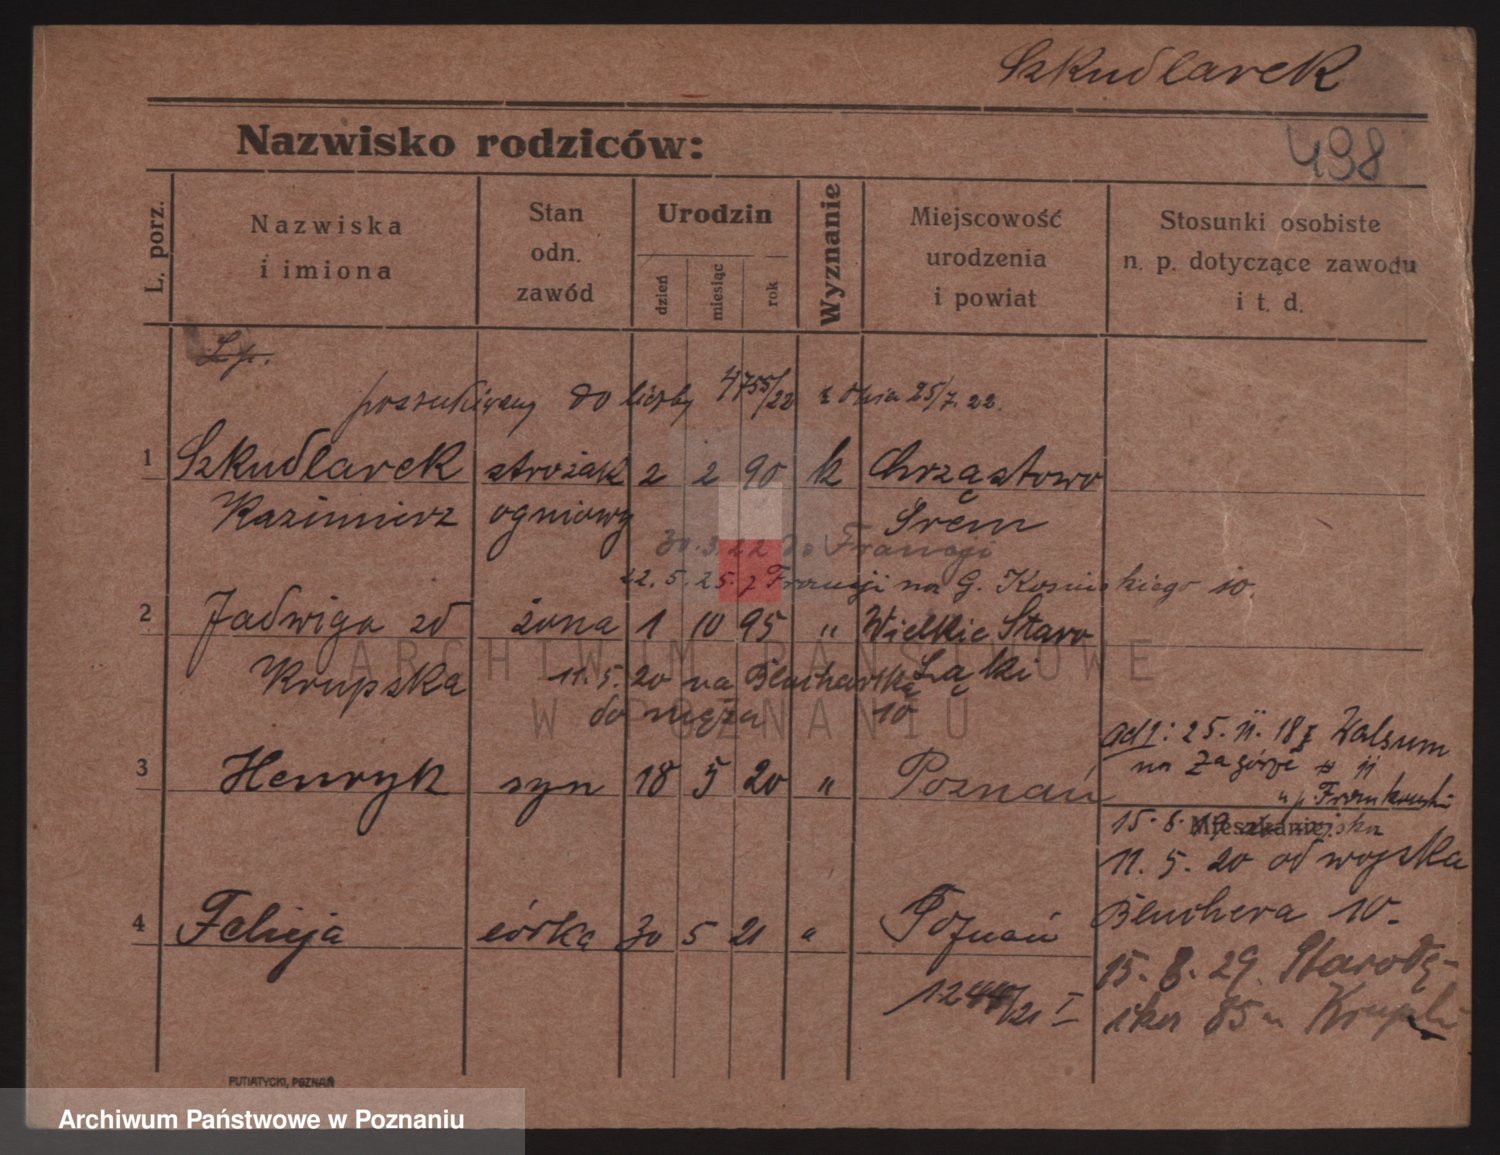 Szkudlarek
498
Nazwisko rodziców:
L. porz.
Nazwiska
i imiona
Stan
odn.
zawód
Urodzin
dzień
miesiąc
rok
Wyznanie
Miejscowość
urodzenia
i powiat
Stosunki osobiste
n. p. dotyczące zawodu
i t. d.
poszukiwany do liczby 4755/22 z dnia 25/7.22.
1 Szkudlarek strożak 2 2 90 k Chrząstowo
Kazimierz ogniowy Śrem
30.3.22 do Francji
22.5.25. z Francji na G. Kosińskiego 10.
2 Jadwiga zd żona 1 10 95 " Wielkie Staro
Krupska Łąki
11.5.20 na Blucharską 10
do męża
ad 1: 25.11.18 z Walsum
na Zagórze
3 Henryk syn 18 5 20 " Poznań
Mieszkanie:
11.5.20 od wojska
Bluchera 10.
4 Felicja córka 30 5 21 " Poznań
1244/21 I
15.8.29. Starołę-
cka 85 Krupski
PUTIATYCKI, POZNAŃ
ARCHIWUM PAŃSTWOWE
W POZNANIU
Archiwum Państwowe w Poznaniu